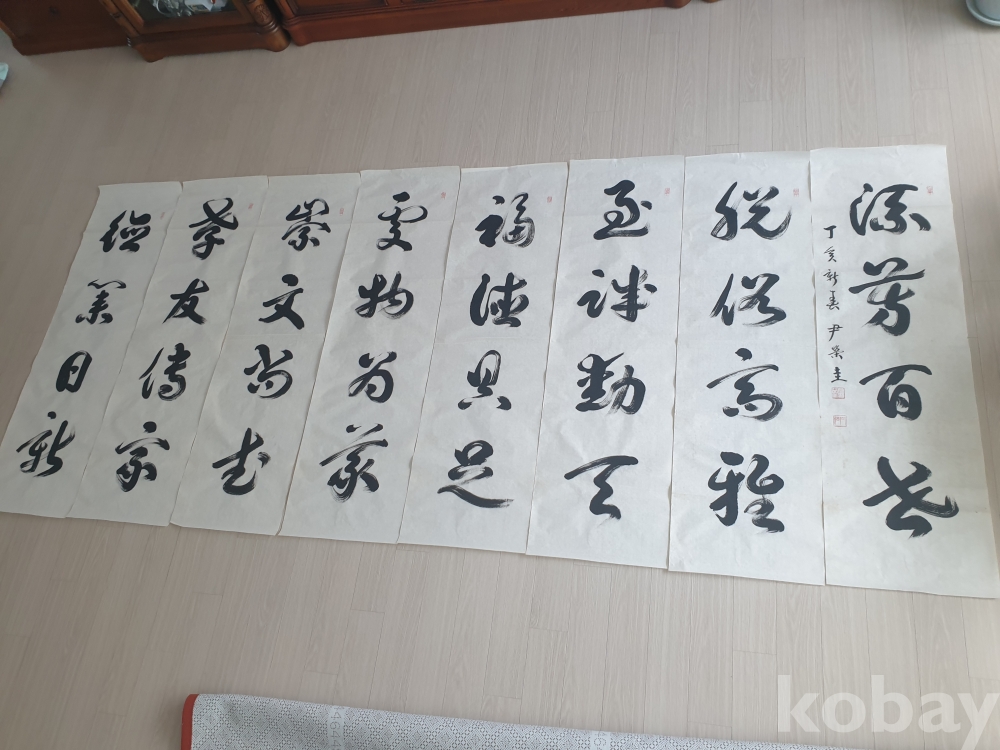 流芳百世
丁亥新春 尹圭
脫俗高雅
至誠動天
福德具足
物為
崇文尚武
孝友傳家
德業日新
kobay